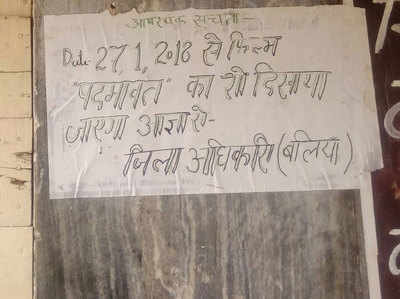 आवश्यक सूचना-
Date 27,1,2018 से फिल्म
"पदमावत" का शो दिखाया
जाएगा आज्ञा से-
जिला अधिकारी (बलिया)